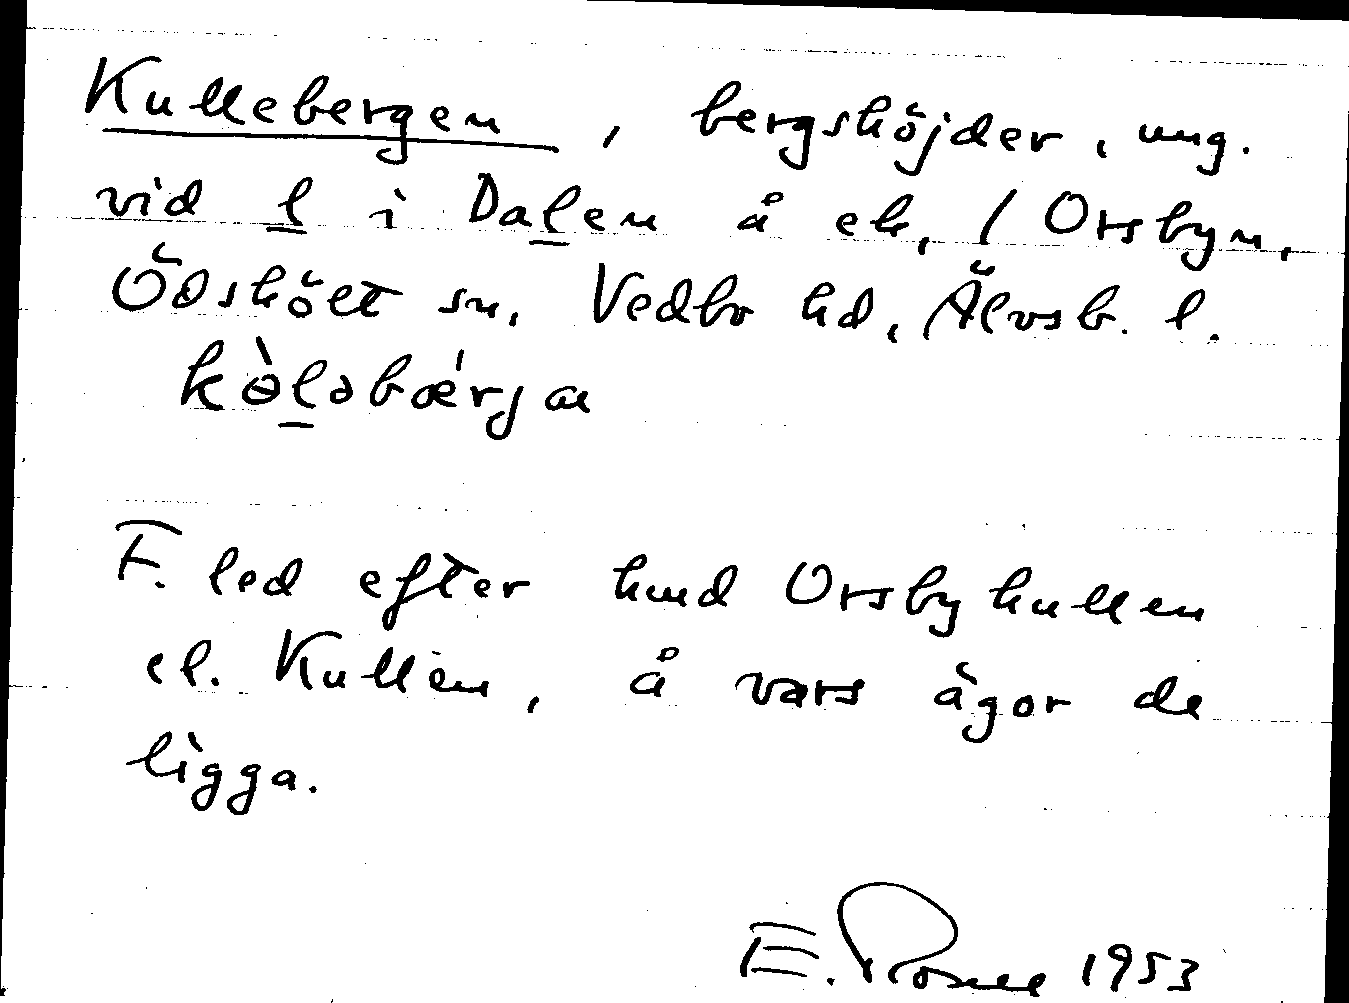 Kullebergen, bergshöjder, ung.
vid l i Dalen å ek, / Orsbyn,
Ödskölt sn, Vedbo hd, Älvsb. l.
kɵ̀ləbǽrjan
F. led efter hmd Orsbykullen
el. Kullen, å vars ägor de
ligga.
E. 1953